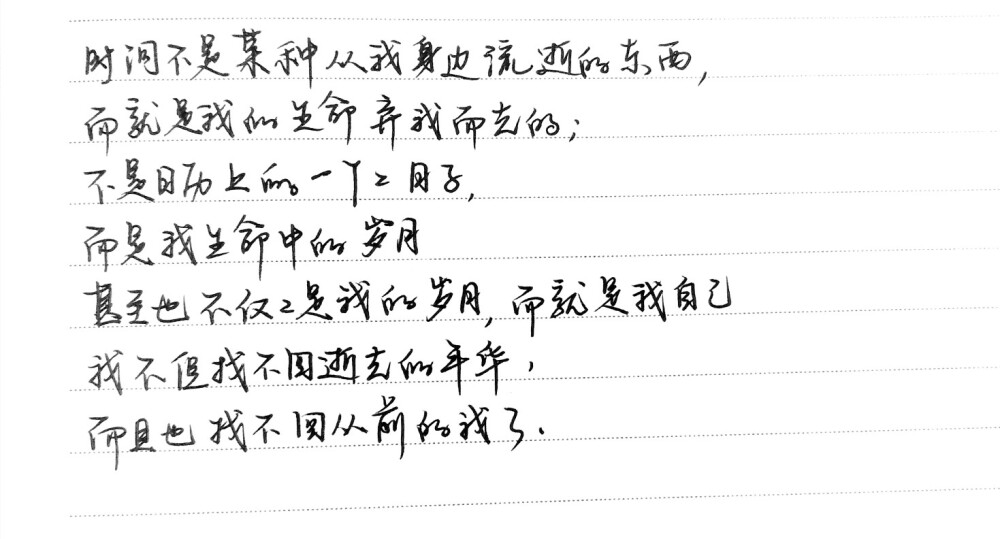 时间不是某种从我身边流逝的东西,
而就是我的生命弃我而去的;
不是日历上的一个々日子,
而是我生命中的岁月
甚至也不仅々是我的岁月,而就是我自己
我不但找不回逝去的年华,
而且也找不回从前的我了.